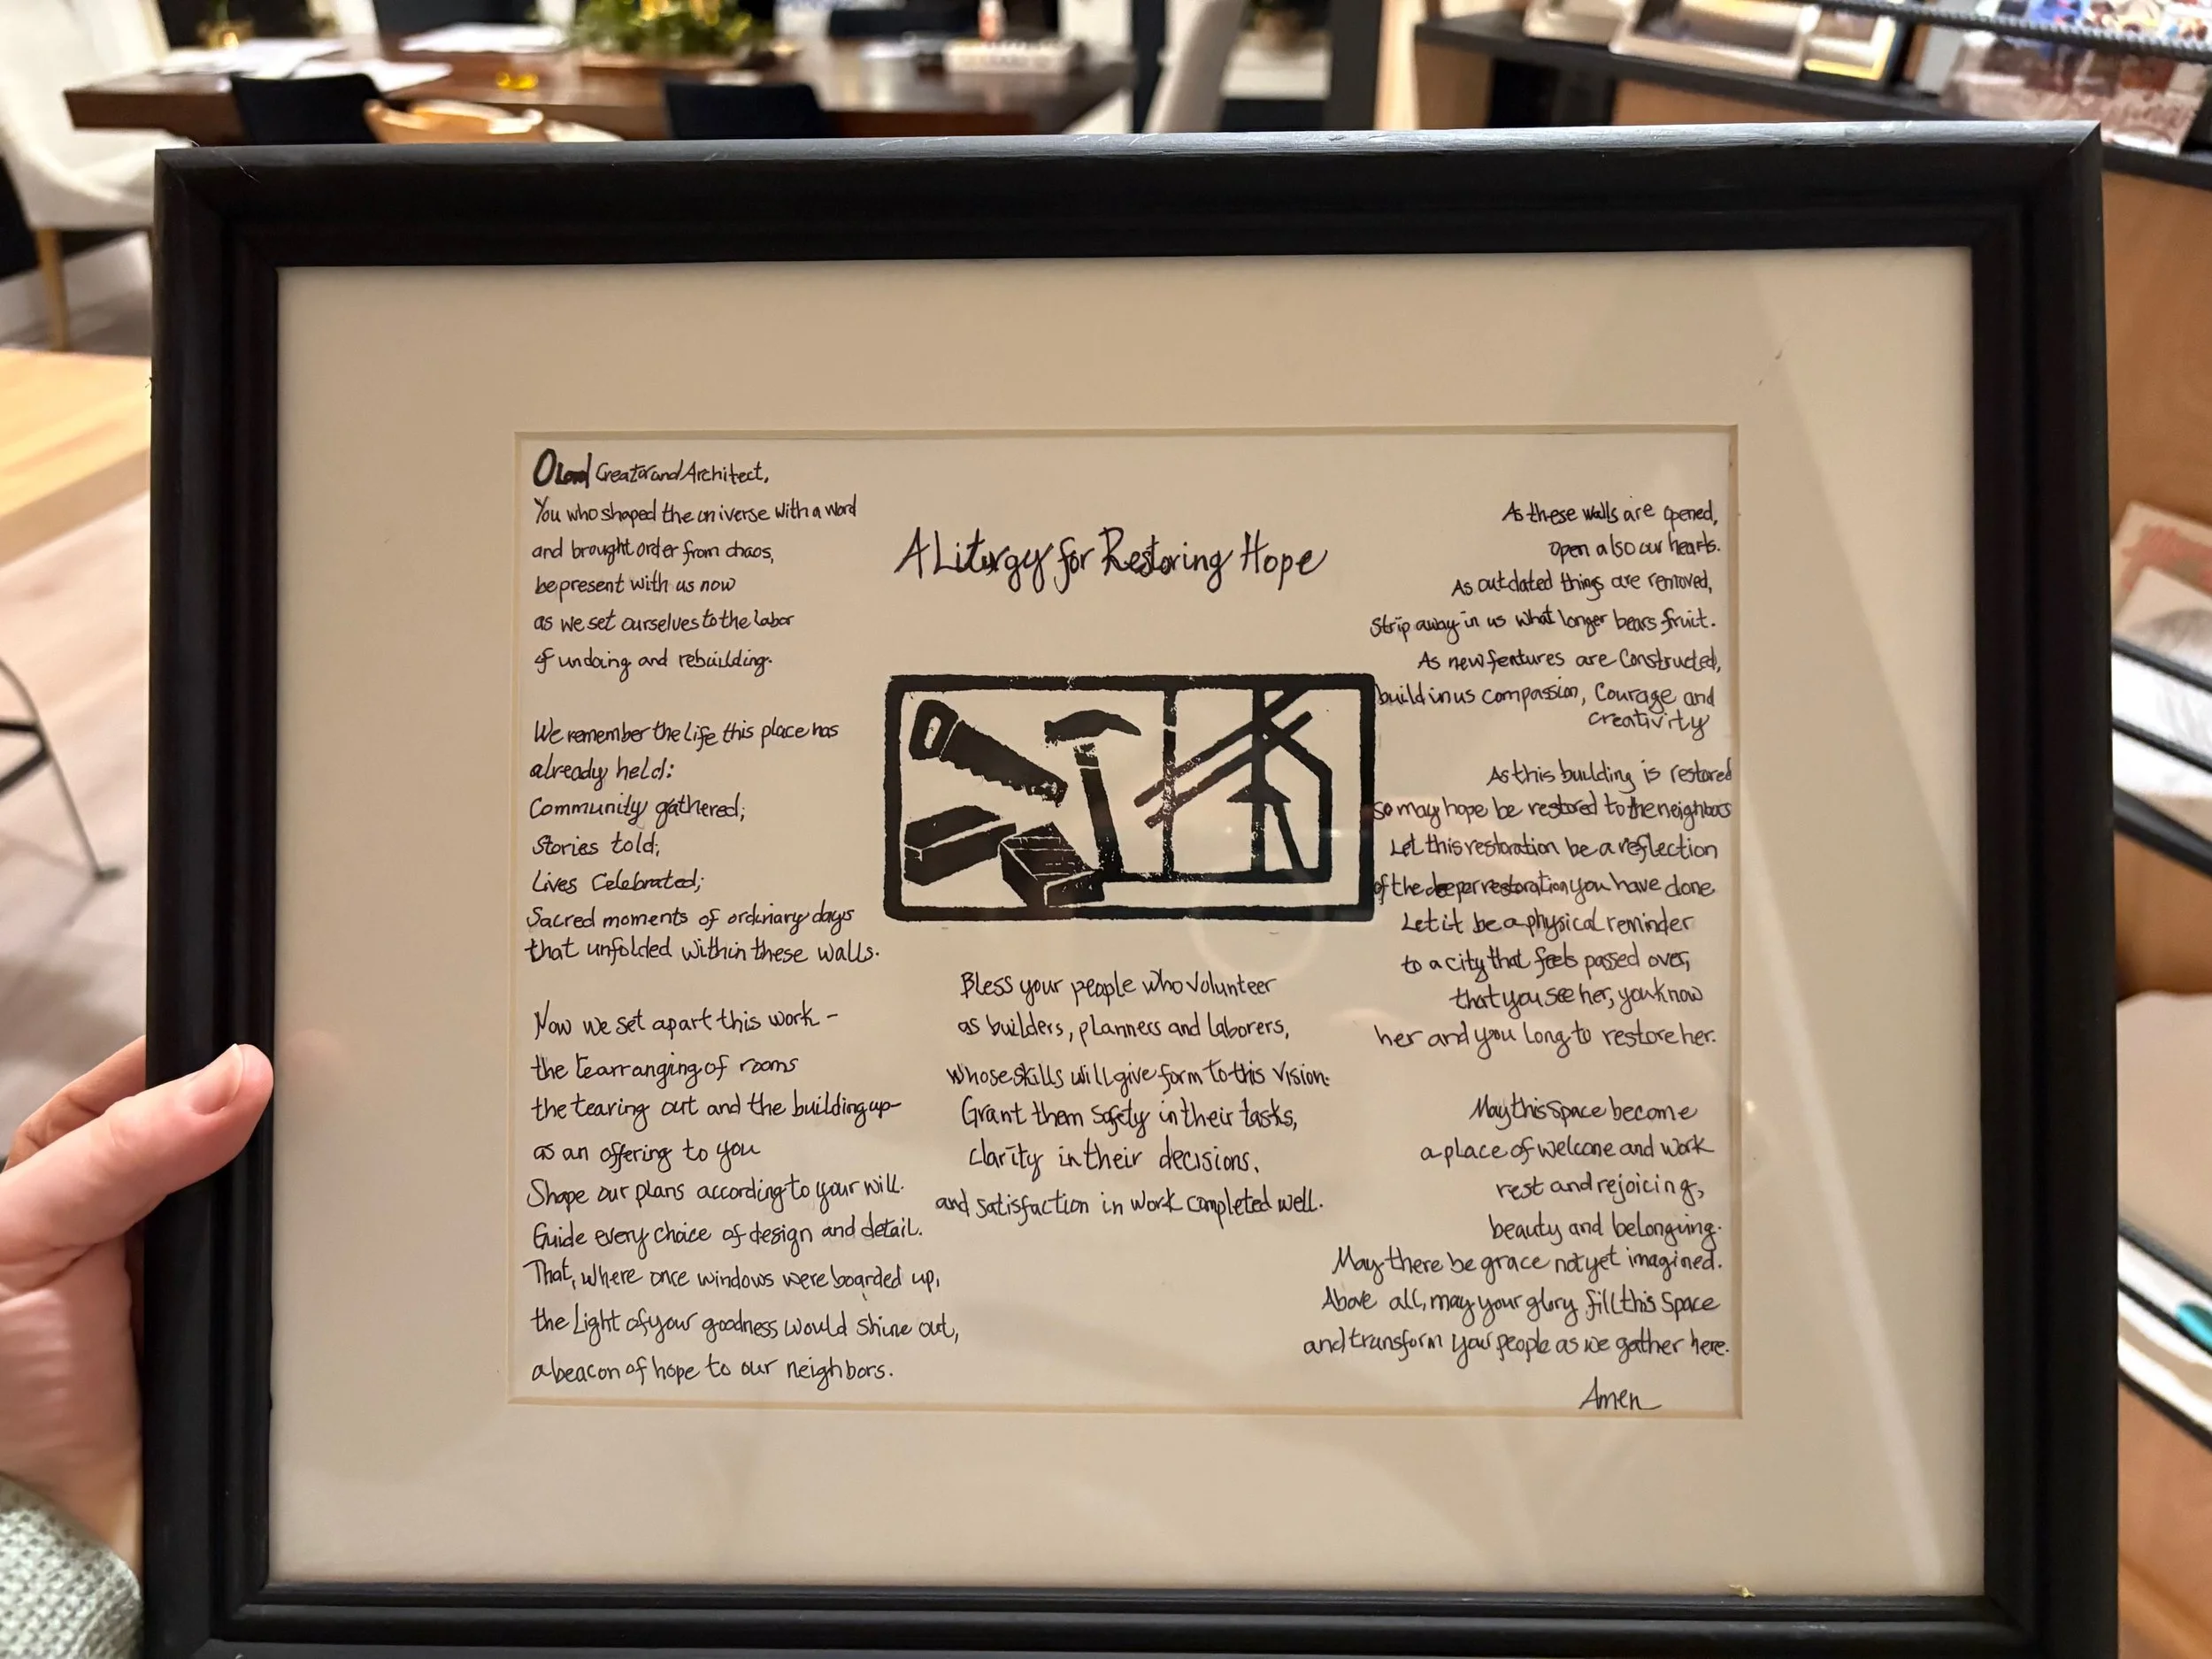 A Liturgy for Restoring Hope
O Lord Creator and Architect,
You who shaped the universe with a word
and brought order from chaos,
be present with us now
as we set ourselves to the labor
of undoing and rebuilding.
We remember the life this place has
already held:
Community gathered;
Stories told;
Lives Celebrated;
Sacred moments of ordinary days
that unfolded within these walls.
Now we set apart this work -
the rearranging of rooms
the tearing out and the building up-
as an offering to you
Shape our plans according to your will.
Guide every choice of design and detail.
That, where once windows were boarded up,
the Light of your goodness would shine out,
a beacon of hope to our neighbors.
Bless your people who volunteer
as builders, planners and laborers,
whose skills will give form to this vision.
Grant them safety in their tasks,
clarity in their decisions,
and satisfaction in work completed well.
As these walls are opened,
open also our hearts.
As outdated things are removed,
Strip away in us what longer bears fruit.
As new fentures are Constructed,
build in us compassion, Courage and
creativity
As this building is restored
so may hope be restored to the neighbors
Let this restoration be a reflection
of the deeper restoration you have done
Let it be a physical reminder
to a city that feels passed over,
that you see her, you know
her and you long to restore her.
May this Space become
a place of welcome and work
rest and rejoicing,
beauty and belonging.
May there be grace not yet imagined.
Above all, may your glory fill this Space
and transform your people as we gather here.
Amen